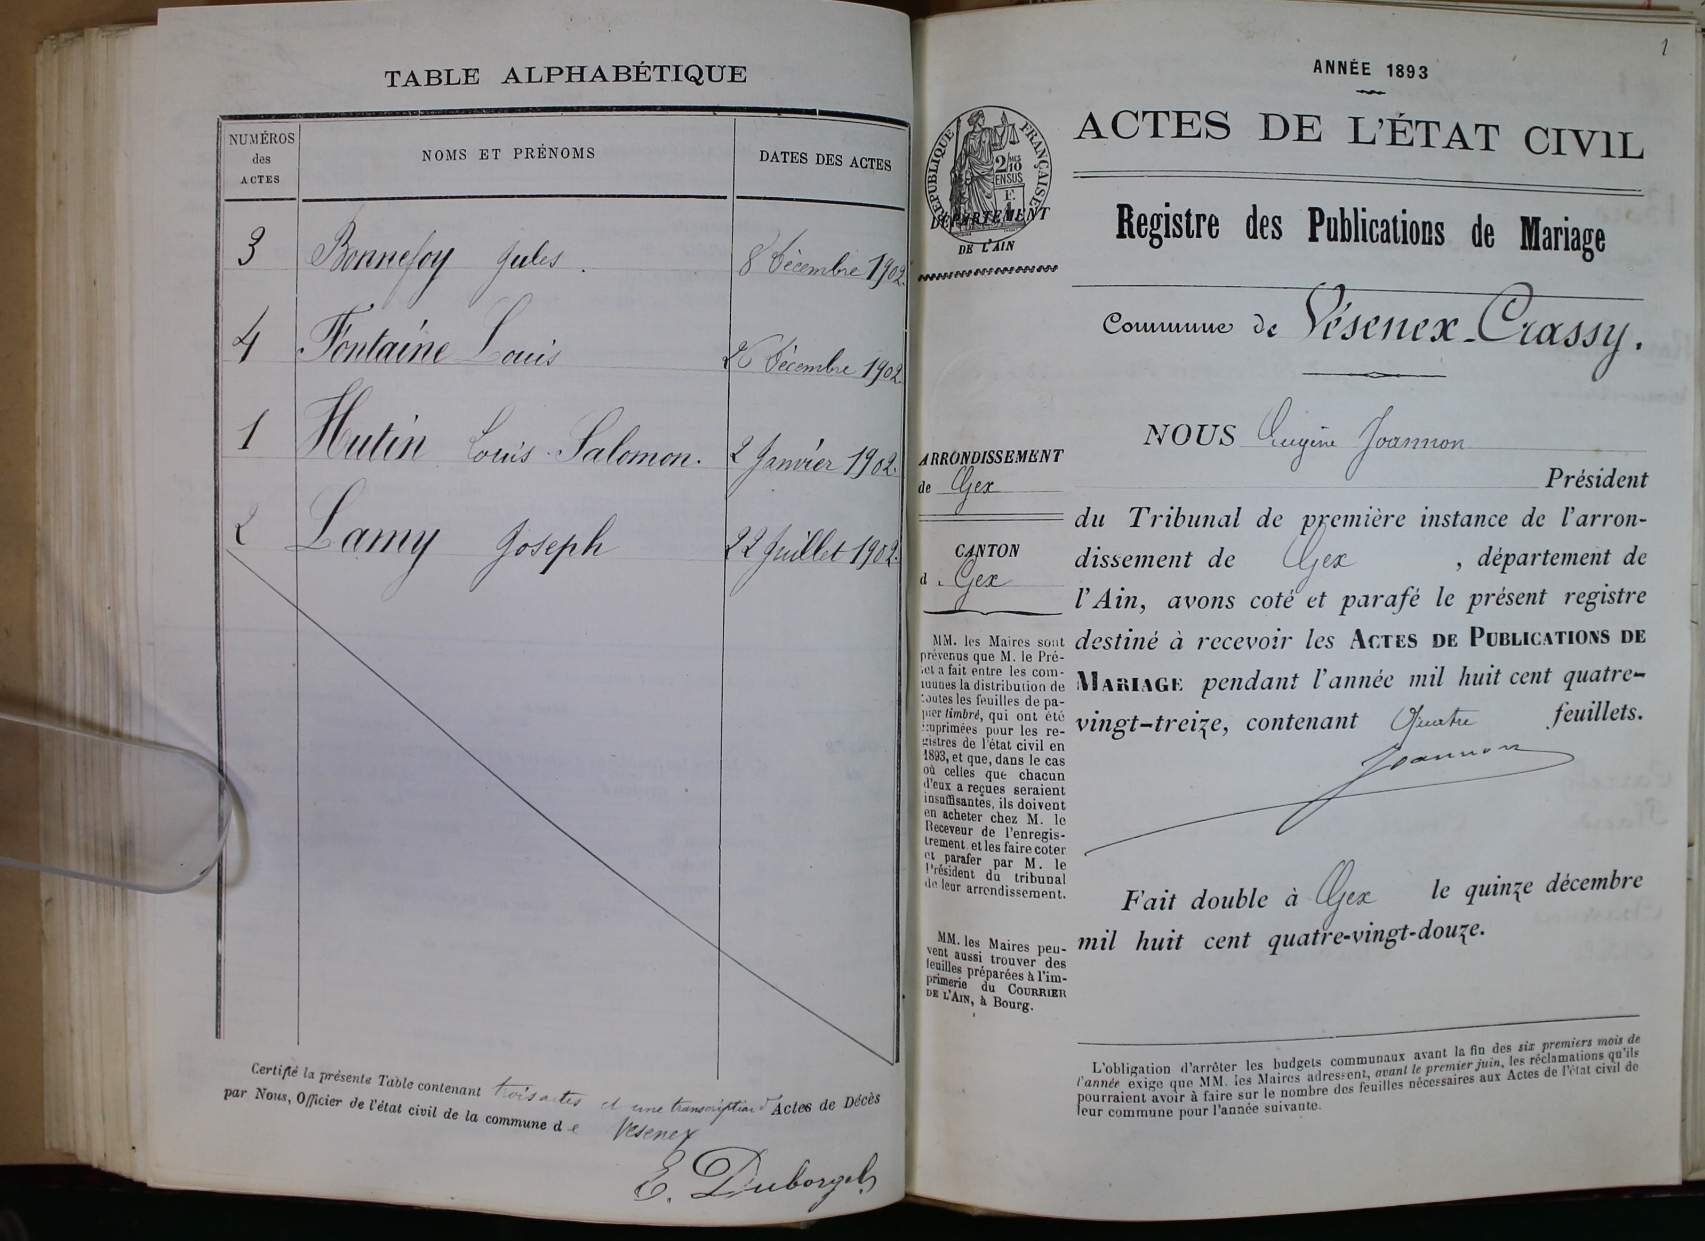 TABLE ALPHABÉTIQUE
NUMÉROS
des
ACTES
NOMS ET PRÉNOMS
DATES DES ACTES
3 Bonnefoy Jules. 8 Décembre 1902.
4 Fontaine Louis 26 Décembre 1902.
1 Hutin Louis Salomon. 2 Janvier 1902.
2 Lamy Joseph 22 Juillet 1902.
Certifié la présente Table contenant trois actes et une transcription d'Actes de Décès
par Nous, Officier de l'état civil de la commune de Vésenex
E. Duborgel
1
ANNÉE 1893
ACTES DE L'ÉTAT CIVIL
RÉPUBLIQUE FRANÇAISE
2/10
EN SUS
DÉPARTEMENT
DE L'AIN
Registre des Publications de Mariage
Commune de Vésenex-Crassy.
ARRONDISSEMENT
de Gex
CANTON
d. Gex
MM. les Maires sont
prévenus que M. le Pré-
fet a fait entre les com-
munes la distribution de
toutes les feuilles de pa-
pier timbré, qui ont été
imprimées pour les re-
gistres de l'état civil en
1893, et que, dans le cas
où celles que chacun
d'eux a reçues seraient
insuffisantes, ils doivent
en acheter chez M. le
Receveur de l'enregis-
trement et les faire coter
et parafer par M. le
Président du tribunal
de leur arrondissement.
MM. les Maires peu-
vent aussi trouver des
feuilles préparées à l'im-
primerie du COURRIER
DE L'AIN, à Bourg.
NOUS Eugène Joannon
Président
du Tribunal de première instance de l'arron-
dissement de Gex , département de
l'Ain, avons coté et parafé le présent registre
destiné à recevoir les ACTES DE PUBLICATIONS DE
MARIAGE pendant l'année mil huit cent quatre-
vingt-treize, contenant Quatre feuillets.
Joannon
Fait double à Gex le quinze décembre
mil huit cent quatre-vingt-douze.
L'obligation d'arrêter les budgets communaux avant la fin des six premiers mois de
l'année exige que MM. les Maires adressent, avant le premier juin, les réclamations qu'ils
pourraient avoir à faire sur le nombre des feuilles nécessaires aux Actes de l'état civil de
leur commune pour l'année suivante.